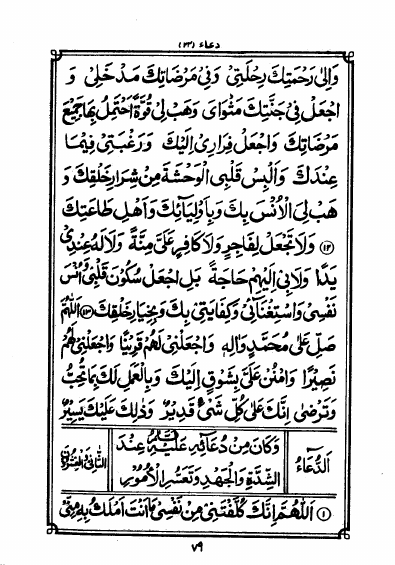 دعاء (٢٢)
وَاِلىٰ رَحْمَتِكَ رِحْلَتِيْ وَفِيْ مَرْضَاتِكَ مَدْخَلِيْ وَ
اجْعَلْ فِيْ جَنَّتِكَ مَثْوَايَ وَهَبْ لِيْ قُوَّةً اَحْتَمِلُ بِهَا جَمِيْعَ
مَرْضَاتِكَ وَاجْعَلْ فِرَارِيْ اِلَيْكَ وَرَغْبَتِيْ فِيْمَا
عِنْدَكَ وَاَلْبِسْ قَلْبِي الْوَحْشَةَ مِنْ شِرَارِ خَلْقِكَ وَ
هَبْ لِيَ الْاُنْسَ بِكَ وَبِاَوْلِيَائِكَ وَاَهْلِ طَاعَتِكَ
(١٢) وَلَا تَجْعَلْ لِفَاجِرٍ وَلَا كَافِرٍ عَلَيَّ مِنَّةً وَلَا لَهُ عِنْدِيْ
يَدًا وَلَا بِيْ اِلَيْهِمْ حَاجَةً بَلِ اجْعَلْ سُكُوْنَ قَلْبِيْ وَاُنْسَ
نَفْسِيْ وَاسْتِغْنَائِيْ وَكِفَايَتِيْ بِكَ وَبِخِيَارِ خَلْقِكَ (١٣) اَللّٰهُمَّ
صَلِّ عَلىٰ مُحَمَّدٍ وَاٰلِهِ وَاجْعَلْنِيْ لَهُمْ قَرِيْنًا وَاجْعَلْنِيْ لَهُمْ
نَصِيْرًا وَامْنُنْ عَلَيَّ بِشَوْقٍ اِلَيْكَ وَبِالْعَمَلِ لَكَ بِمَا تُحِبُّ
وَتَرْضىٰ اِنَّكَ عَلىٰ كُلِّ شَيْءٍ قَدِيْرٌ وَذٰلِكَ عَلَيْكَ يَسِيْرٌ
اَلدُّعَاءُ
وَكَانَ مِنْ دُعَائِهِ عَلَيْهِ السَّلَامُ عِنْدَ
الشِّدَّةِ وَالْجَهْدِ وَتَعَسُّرِ الْاُمُوْرِ
الثَّانِيْ وَالْعِشْرُوْنَ
(١) اَللّٰهُمَّ اِنَّكَ كَلَّفْتَنِيْ مِنْ نَفْسِيْ مَا اَنْتَ اَمْلَكُ بِهِ مِنِّيْ
٧٩